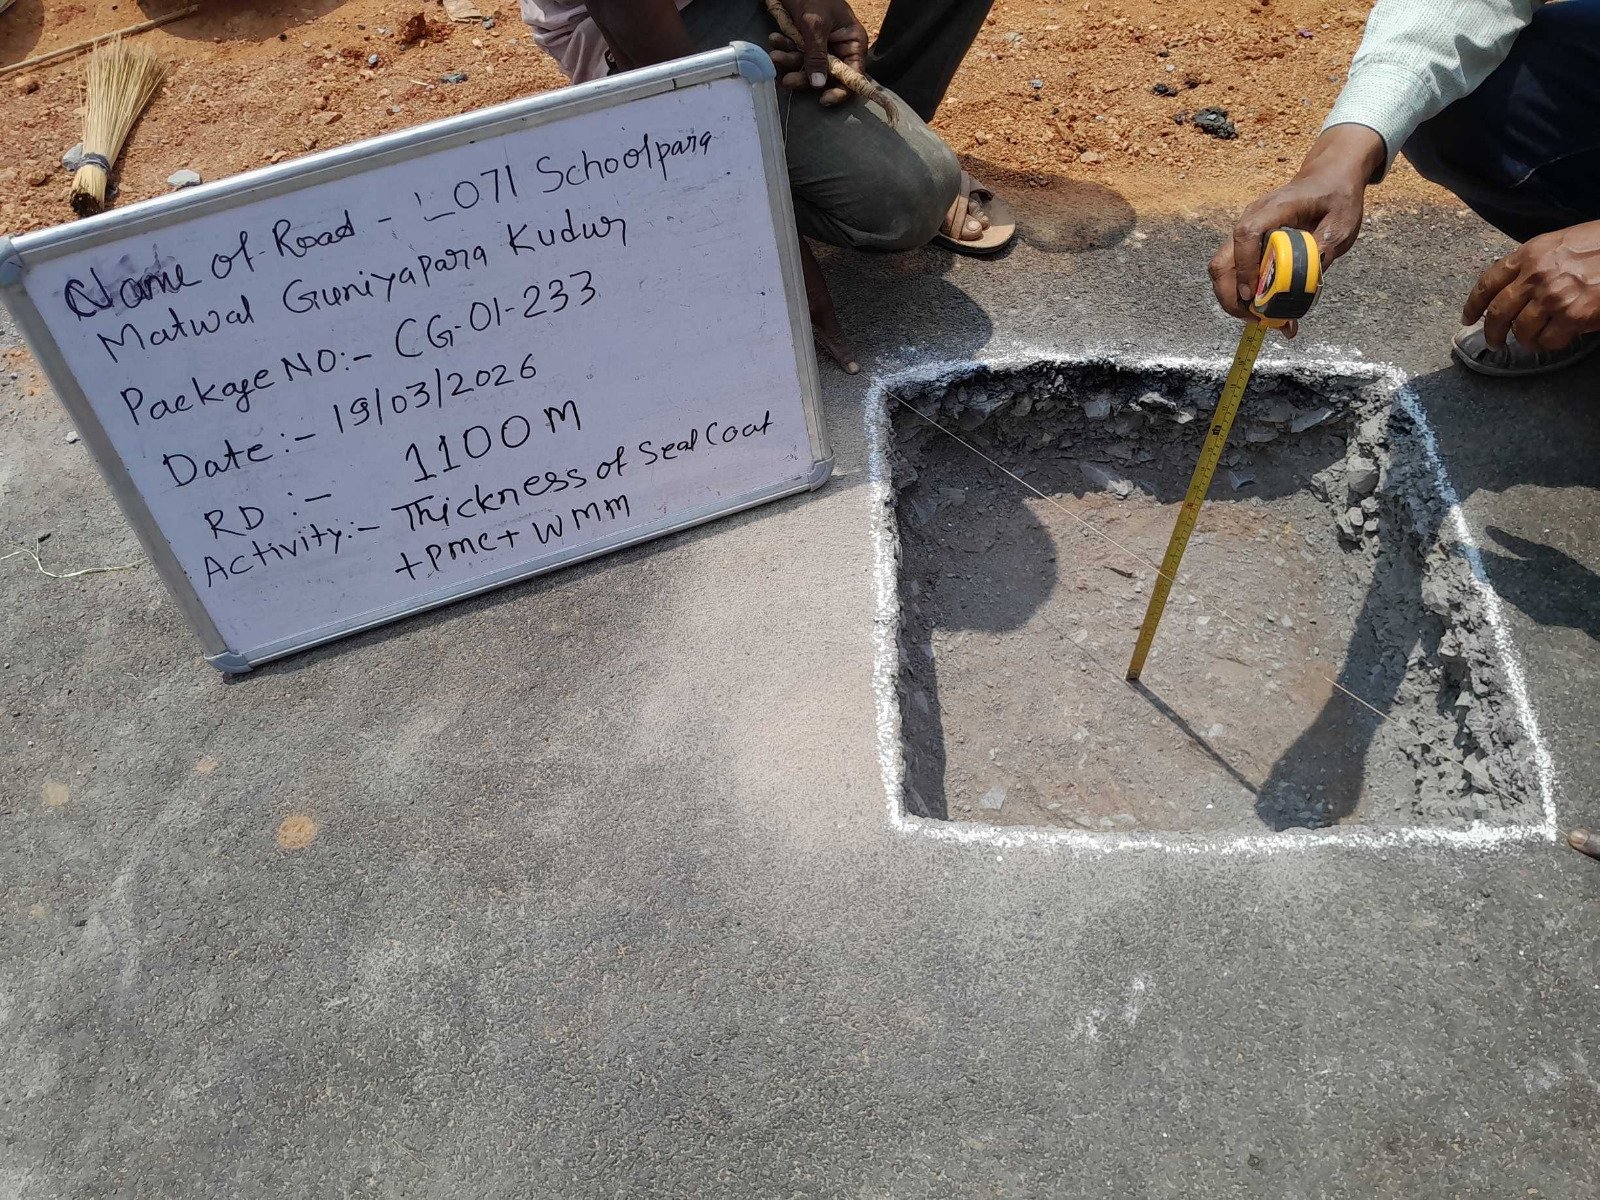 Name of Road - L071 Schoolpara
Matwal Guniyapara Kudur
Package NO:- CG-01-233
Date:- 19/03/2026
RD :- 1100 M
Activity:- Thickness of Seal Coat
+PMC+ WMM